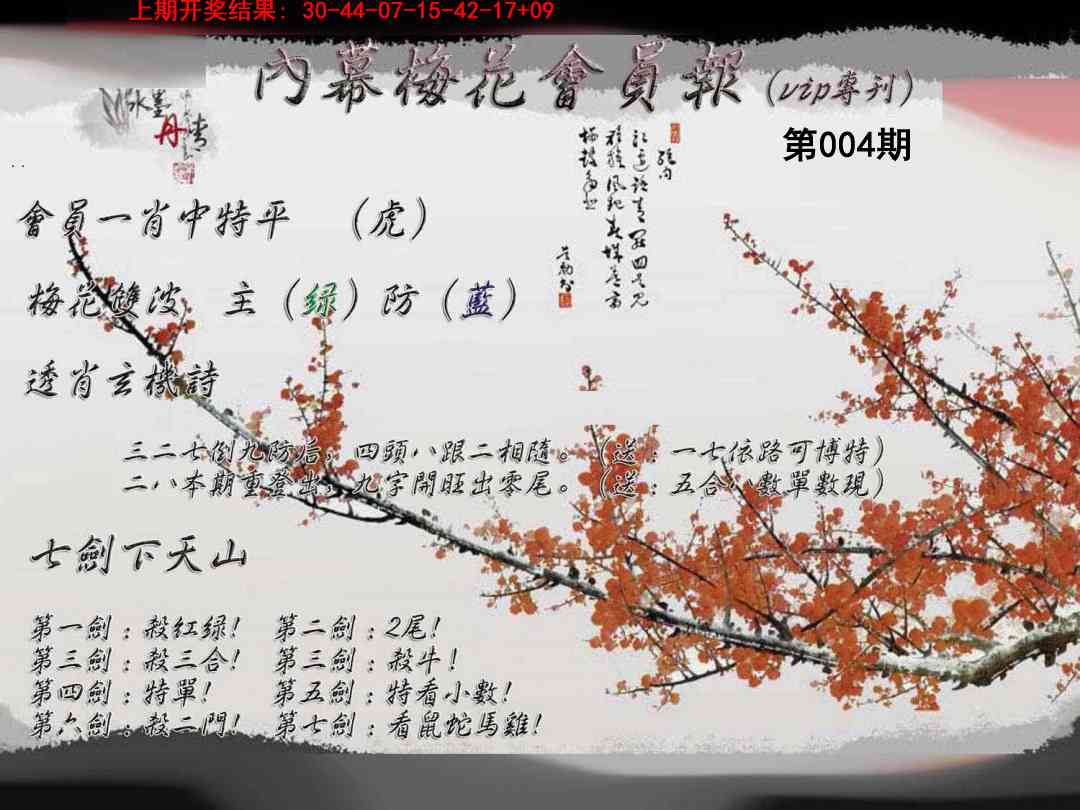 上期开奖结果: 30-44-07-15-42-17+09
內幕梅花會員報(vip專刊)
水墨
丹青
第004期
會員一肖中特平 （虎）
梅花雙波 主（绿）防（藍）
透肖玄機詩
三二七倒九防后，四頭八跟二相隨。（送：一七依路可博特）
二八本期重登出，九字開旺出零尾。（送：五合八數單數現）
七劍下天山
第一劍：殺红绿! 第二劍：2尾!
第三劍：殺三合! 第三劍：殺牛!
第四劍：特單! 第五劍：特看小數!
第六劍：殺二門! 第七劍：看鼠蛇馬雞!